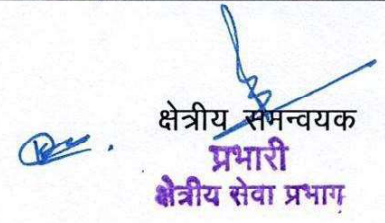 क्षेत्रीय समन्वयक
प्रभारी
क्षेत्रीय सेवा प्रभाग